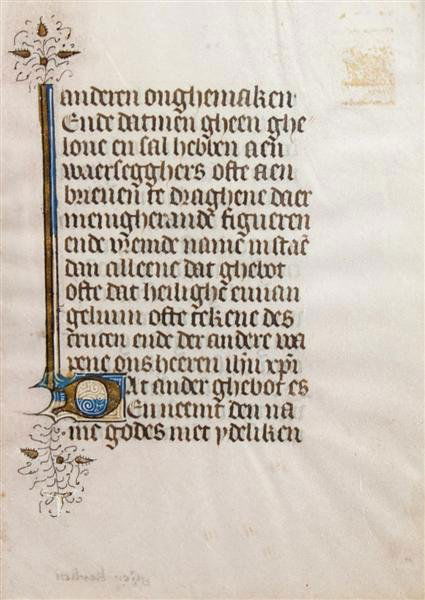 anderen onghemaken
Ende datmen gheen ghe
loue en sal hebben aen
waersegghers ofte aen
brieuen te draghene daer
menigherande figueren
ende vremde namen in staen
dan alleene dat ghebot
ofte dat heilighe euuan
gelium ofte tekene des
crucen ende der andere wa
pene ons heeren ihu xpi
Dat ander ghebot es
En neemt den na
me godes niet ydeliken